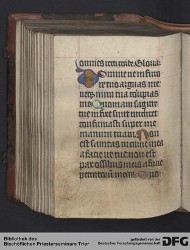 omnes
Domine ne in furo
re tuo arguas me
neque in ira tua corripias
me Quoniam sagitte
tue infixe sunt michi et
confirmasti super me
manum tuam Non
est sanitas in carne mea
a facie ire tue non est
pax ossibus meis a facie
peccatorum meorum
Bibliothek des
Bischöflichen Priesterseminars Trier
gefördert von der
Deutschen Forschungsgemeinschaft
DFG